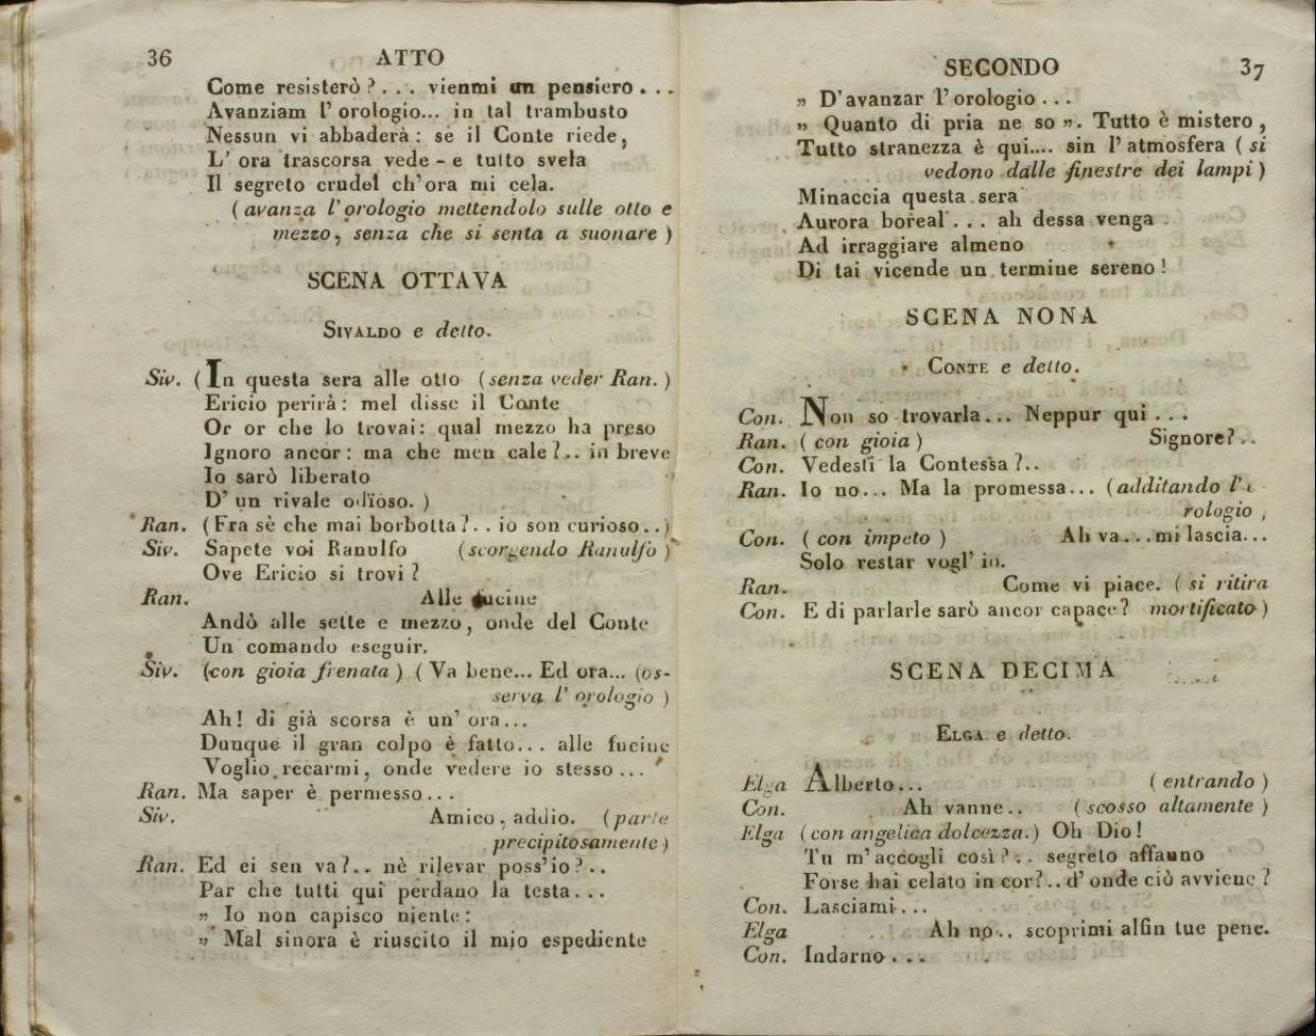 36 ATTO
Come resisterò?... vienmi un pensiero...
Avanziam l'orologio... in tal trambusto
Nessun vi abbaderà: se il Conte riede,
L'ora trascorsa vede - e tutto svela
Il segreto crudel ch'ora mi cela.
(avanza l'orologio mettendolo sulle otto e
mezzo, senza che si senta a suonare)
SCENA OTTAVA
SIVALDO e detto.
Siv. (In questa sera alle otto (senza veder Ran.)
Ericio perirà: mel disse il Conte
Or or che lo trovai: qual mezzo ha preso
Ignoro ancor: ma che men cale?.. in breve
Io sarò liberato
D'un rivale odïoso.)
Ran. (Fra sè che mai borbotta?.. io son curioso..)
Siv. Sapete voi Ranulfo (scorgendo Ranulfo)
Ove Ericio si trovi?
Ran. Alle fucine
Andò alle sette e mezzo, onde del Conte
Un comando eseguir.
Siv. (con gioia frenata) (Va bene... Ed ora... (os-
serva l'orologio)
Ah! di già scorsa è un'ora...
Dunque il gran colpo è fatto... alle fucine
Voglio recarmi, onde vedere io stesso...
Ran. Ma saper è permesso...
Siv. Amico, addio. (parte
precipitosamente)
Ran. Ed ei sen va?.. nè rilevar poss'io?..
Par che tutti quì perdano la testa...
„ Io non capisco niente:
„ Mal sinora è riuscito il mio espediente
SECONDO 37
„ D'avanzar l'orologio...
„ Quanto di pria ne so „. Tutto è mistero,
Tutto stranezza è qui.... sin l'atmosfera (si
vedono dalle finestre dei lampi)
Minaccia questa sera
Aurora boreal... ah dessa venga
Ad irraggiare almeno
Di tai vicende un termine sereno!
SCENA NONA
CONTE e detto.
Con. Non so trovarla... Neppur qui...
Ran. (con gioia) Signore?..
Con. Vedesti la Contessa?..
Ran. Io no... Ma la promessa... (additando l'o
rologio,
Con. (con impeto) Ah va...mi lascia...
Solo restar vogl'io.
Ran. Come vi piace. (si ritira
Con. E di parlarle sarò ancor capace? mortificato)
SCENA DECIMA
ELGA e detto.
Elga Alberto... (entrando)
Con. Ah vanne.. (scosso altamente)
Elga (con angelica dolcezza.) Oh Dio!
Tu m'accogli così?.. segreto affanno
Forse hai celato in cor?..d'onde ciò avviene?
Con. Lasciami...
Elga Ah no.. scoprimi alfin tue pene.
Con. Indarno...